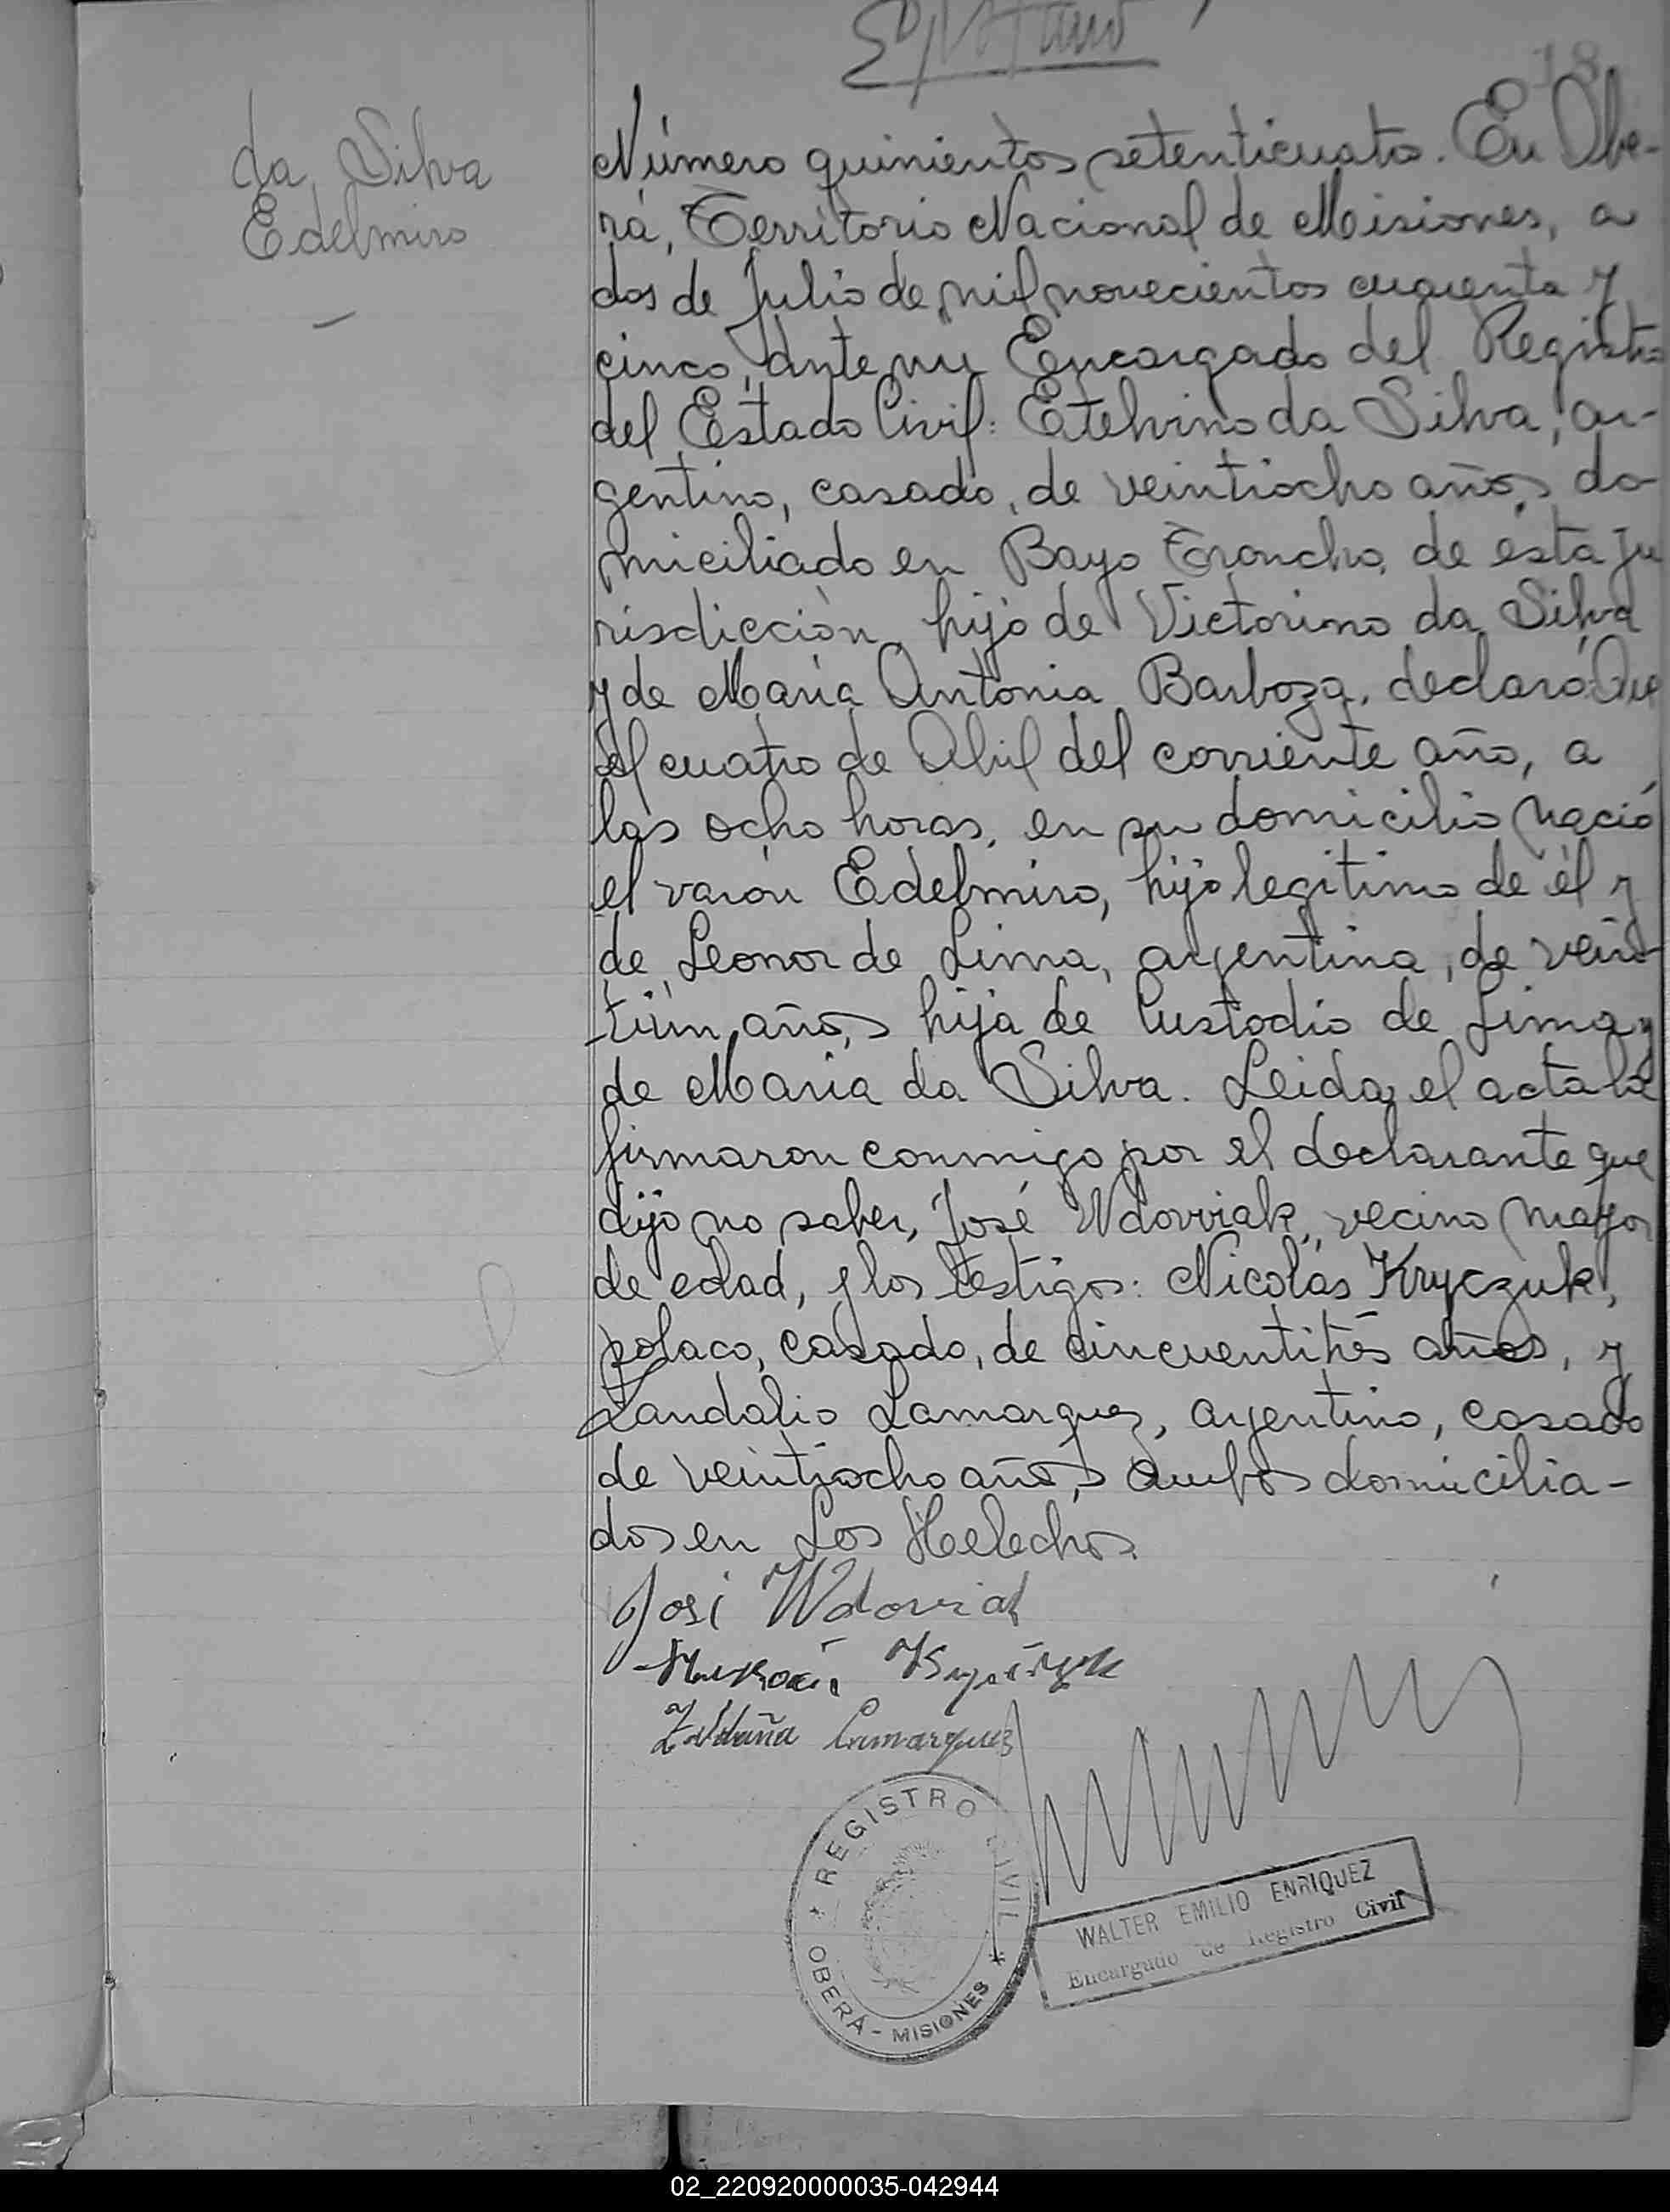 18
da Silva
Edelmiro
Número quinientos setenticuatro. En Obe-
rá, Territorio Nacional de Misiones, a
dos de Julio de mil novecientos cuarenta y
cinco, ante mi Encargado del Registro
del Estado Civil: Etelvino da Silva, ar-
gentino, casado, de veintiocho años, do-
miciliado en Bayo Troncho, de ésta ju
risdicción, hijo de Victorino da Silva
y de María Antonia Barboza, declaró: Que
el cuatro de Abril del corriente año, a
las ocho horas, en su domicilio nació
el varón Edelmiro, hijo legitimo de él y
de Leonor de Lima, argentina, de vein-
tiún años, hija de Custodio de Lima y
de María da Silva. Leida el acta la
firmaron conmigo por el declarante que
dijo no saber, José Wdoviak, vecino mayor
de edad, y los testigos: Nicolás Kryczuk,
polaco, casado, de cincuentitrés años, y
Landalio Lamarquez, argentino, casado
de veintiocho años, ambos domicilia-
dos en Los Helechos.
José Wdoviak
Lamarquez
REGISTRO CIVIL
OBERÁ - MISIONES
WALTER EMILIO ENRIQUEZ
Encargado de Registro Civil
02_220920000035-042944